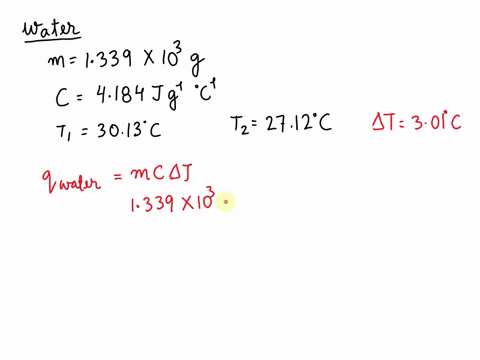 water
m = 1.339 × 10³ g
C = 4.184 J g⁻¹ °C⁻¹
T₁ = 30.13°C T₂ = 27.12°C ΔT = 3.01°C
q water = m C ΔT
1.339 × 10³